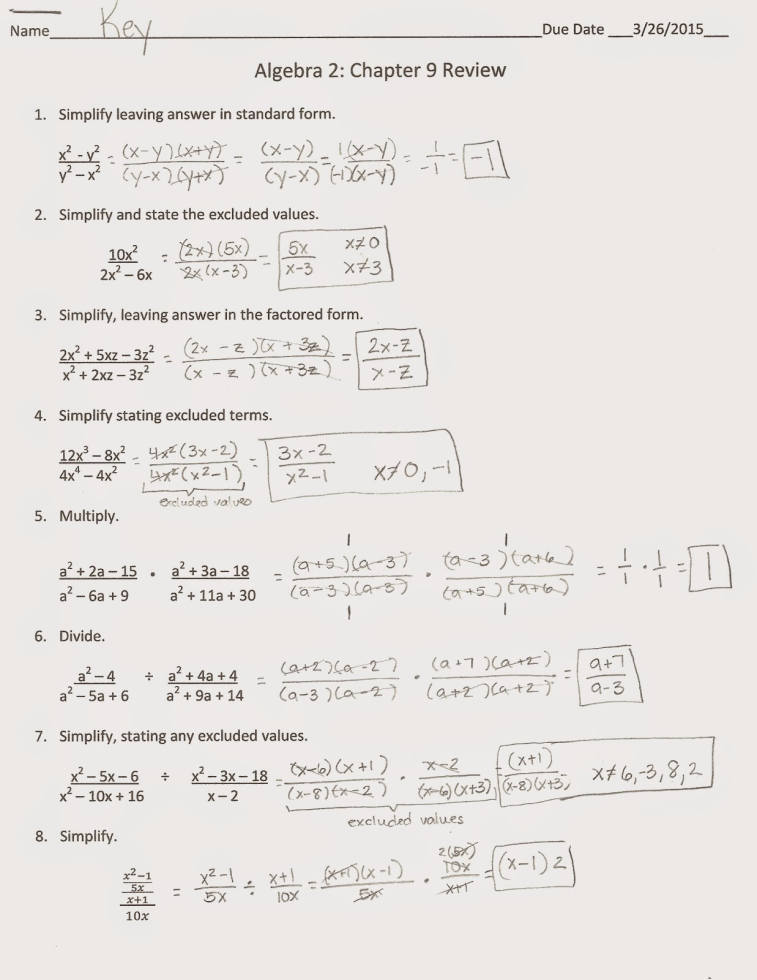 Name Key Due Date 3/26/2015
Algebra 2: Chapter 9 Review
1. Simplify leaving answer in standard form.
x² - y² / y² – x² = (x-y)(x+y) / (y-x)(y+x) = (x-y) / (y-x) = 1(x-y) / (-1)(x-y) = 1 / -1 = -1
2. Simplify and state the excluded values.
10x² / 2x² – 6x = (2x)(5x) / 2x(x-3) = 5x / x-3 x≠0 x≠3
3. Simplify, leaving answer in the factored form.
2x² + 5xz – 3z² / x² + 2xz – 3z² = (2x - z)(x + 3z) / (x - z)(x + 3z) = 2x-z / x-z
4. Simplify stating excluded terms.
12x³ – 8x² / 4x⁴ – 4x² = 4x²(3x-2) / 4x²(x²-1) = 3x-2 / x²-1 x≠0,-1
excluded values
5. Multiply.
1 1
a² + 2a – 15 / a² – 6a + 9 • a² + 3a – 18 / a² + 11a + 30 = (a+5)(a-3) / (a-3)(a-3) · (a-3)(a+6) / (a+5)(a+6) = 1/1 · 1/1 = 1
1 1
6. Divide.
a² – 4 / a² – 5a + 6 ÷ a² + 4a + 4 / a² + 9a + 14 = (a+2)(a-2) / (a-3)(a-2) · (a+7)(a+2) / (a+2)(a+2) = a+7 / a-3
7. Simplify, stating any excluded values.
x² – 5x – 6 / x² – 10x + 16 ÷ x² – 3x – 18 / x – 2 = (x-6)(x+1) / (x-8)(x-2) · x-2 / (x-6)(x+3) = (x+1) / (x-8)(x+3) x≠6,-3,8,2
excluded values
8. Simplify.
x²–1 / 5x / x+1 / 10x = x²-1 / 5x ÷ x+1 / 10x = (x+1)(x-1) / 5x · 2(5x) 10x / x+1 = (x-1)2